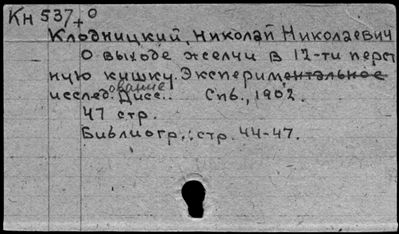 Кн 537+0
Клодницкий, Николай Николаевич
О выходе желчи в 12-ти перст
ную кишку. Экспериментальное
исследование. Дисс.. Спб., 1902.
47 стр.
Библиогр.: стр. 44-47.